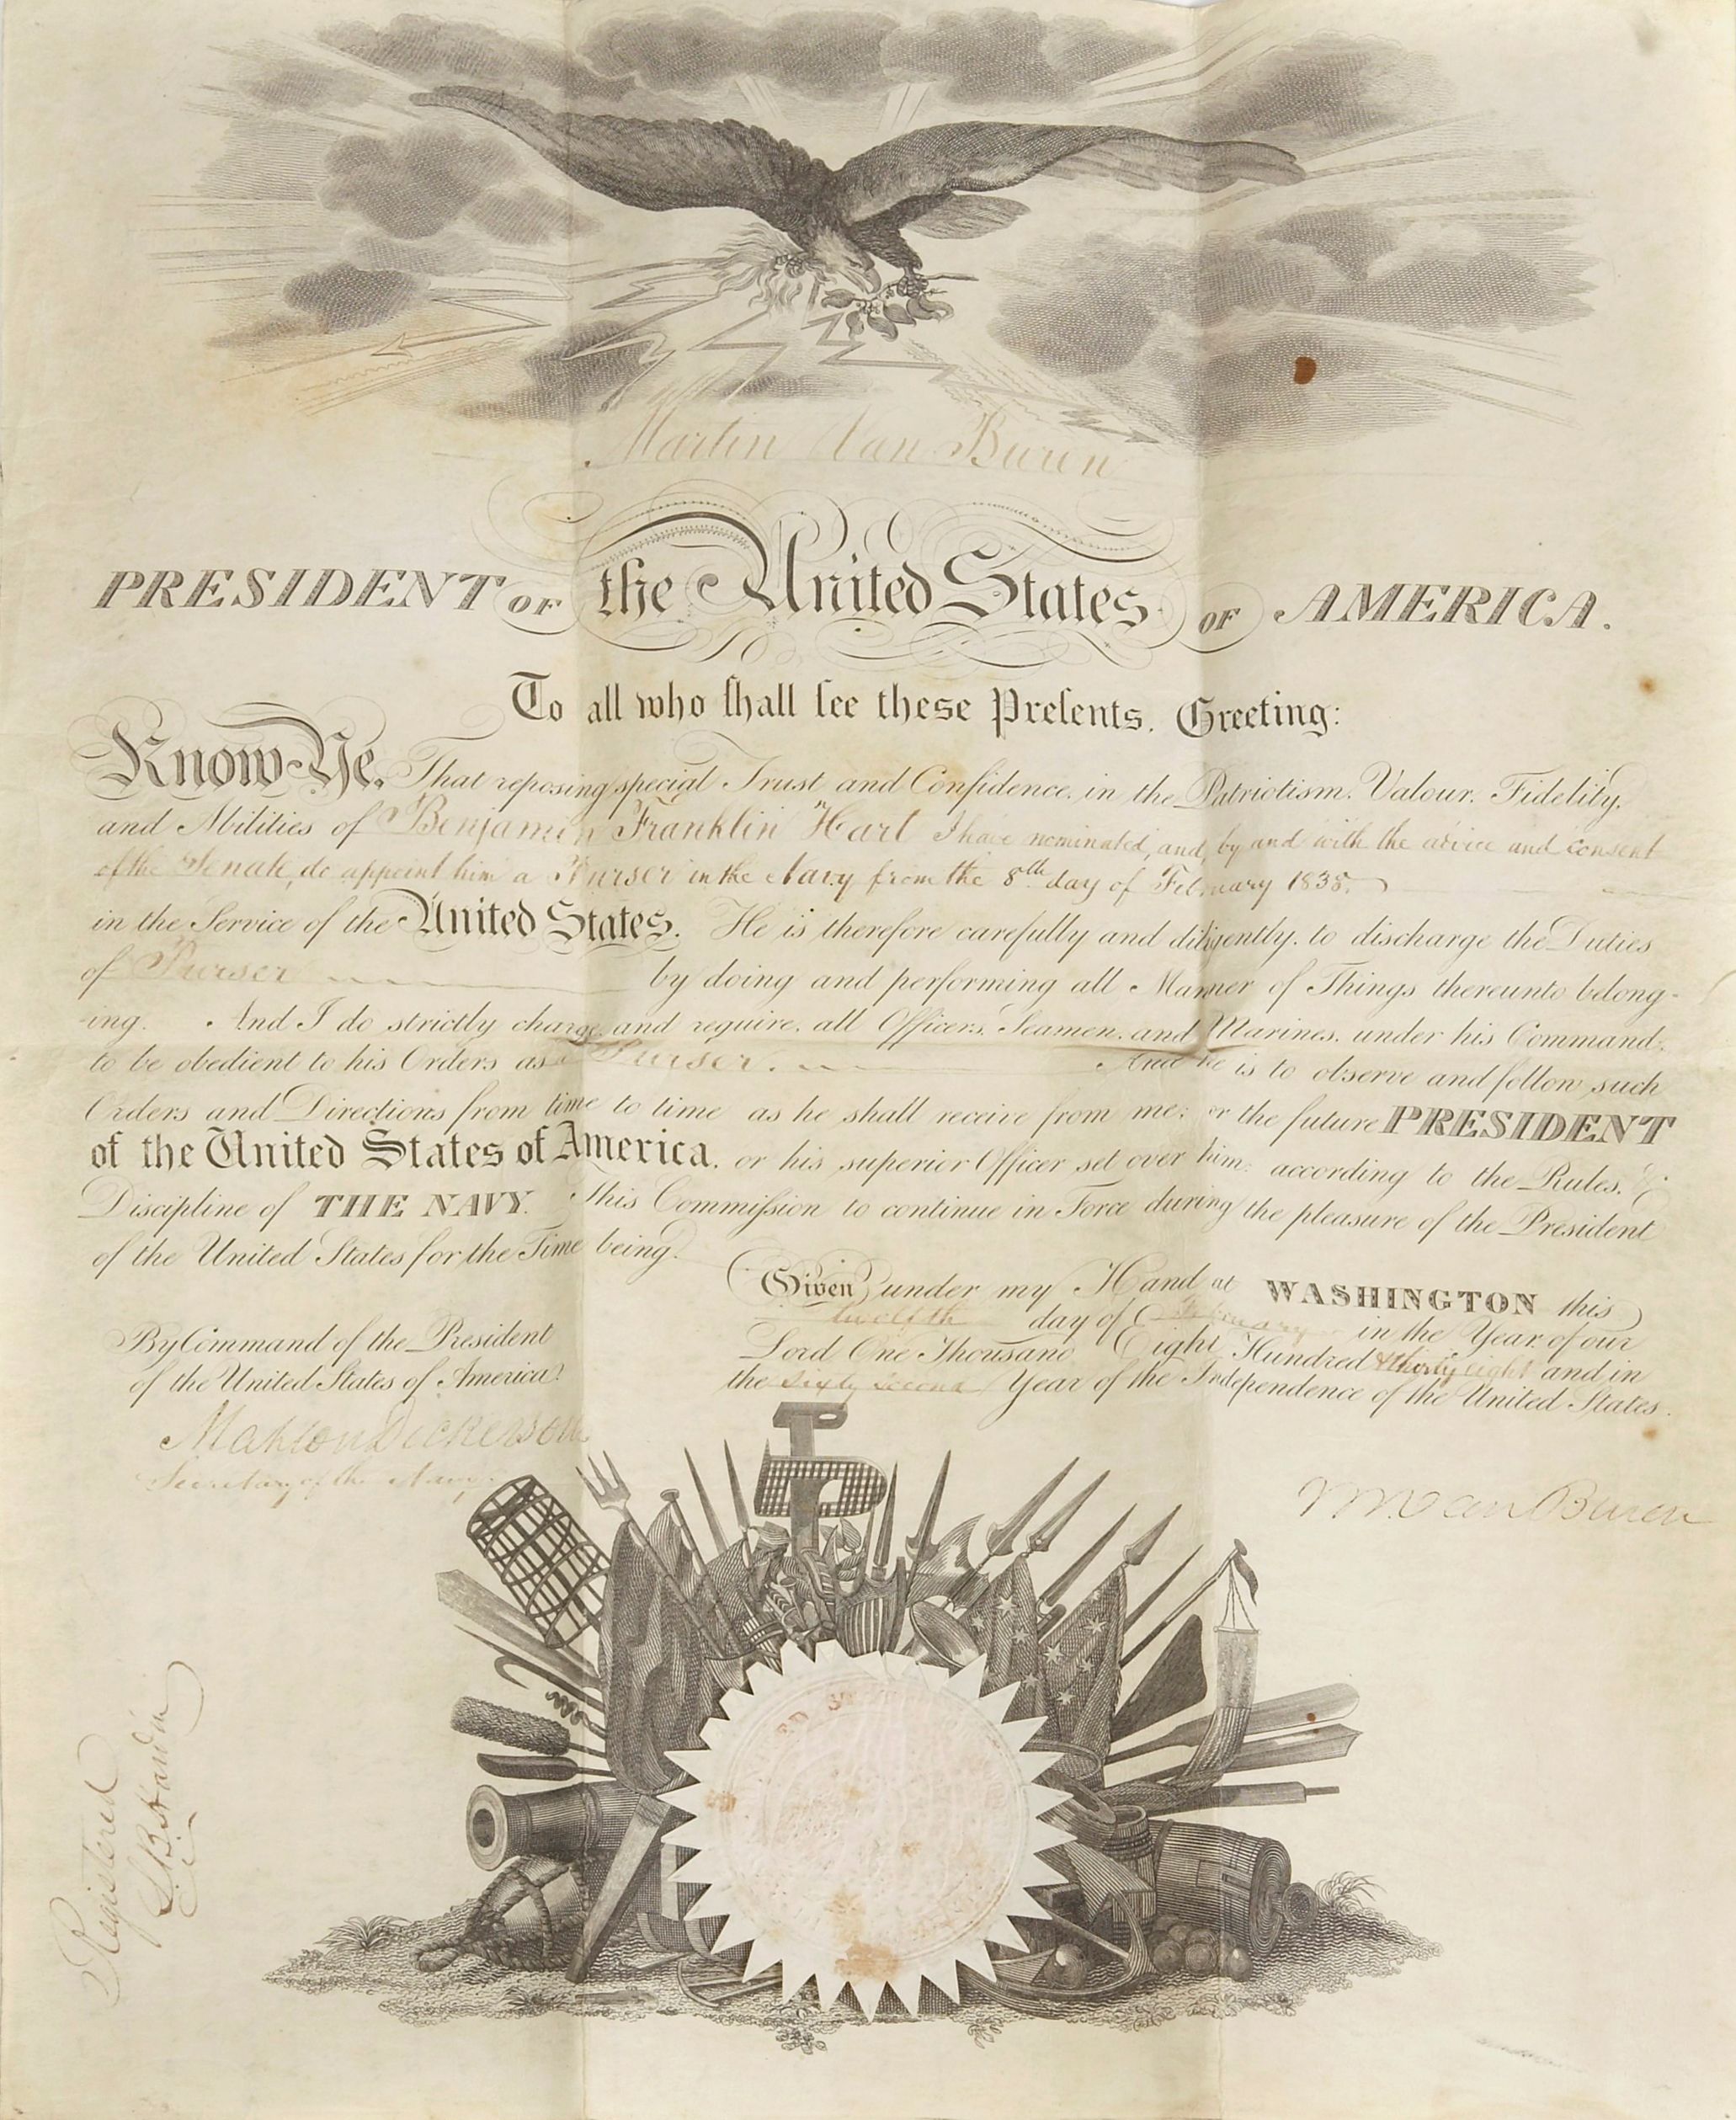 Martin Van Buren
PRESIDENT OF the United States OF AMERICA.
To all who ſhall ſee these Preſents, Greeting:
Know Ye, That reposing special Trust and Confidence in the Patriotism, Valour, Fidelity,
and Abilities of Benjamin Franklin Hart I have nominated, and, by and with the advice and consent
of the Senate, do appoint him a Purser in the Navy from the 8th day of February 1838.
in the Service of the United States. He is therefore carefully and diligently to discharge the Duties
of Purser by doing and performing all Manner of Things thereunto belong-
-ing. And I do strictly charge and require all Officers, Seamen, and Marines, under his Command,
to be obedient to his Orders as a Purser. And he is to observe and follow such
Orders and Directions from time to time as he shall receive from me, or the future PRESIDENT
of the United States of America, or his superior Officer set over him, according to the Rules, &
Discipline of THE NAVY. This Commiſsion to continue in Force during the pleasure of the President
of the United States for the Time being.
Given under my Hand at WASHINGTON this
twelfth day of February in the Year of our
Lord One Thousand Eight Hundred & thirty eight and in
the sixty second Year of the Independence of the United States.
By Command of the President
of the United States of America.
Mahlon Dickerson
Secretary of the Navy.
M Van Buren
Registered